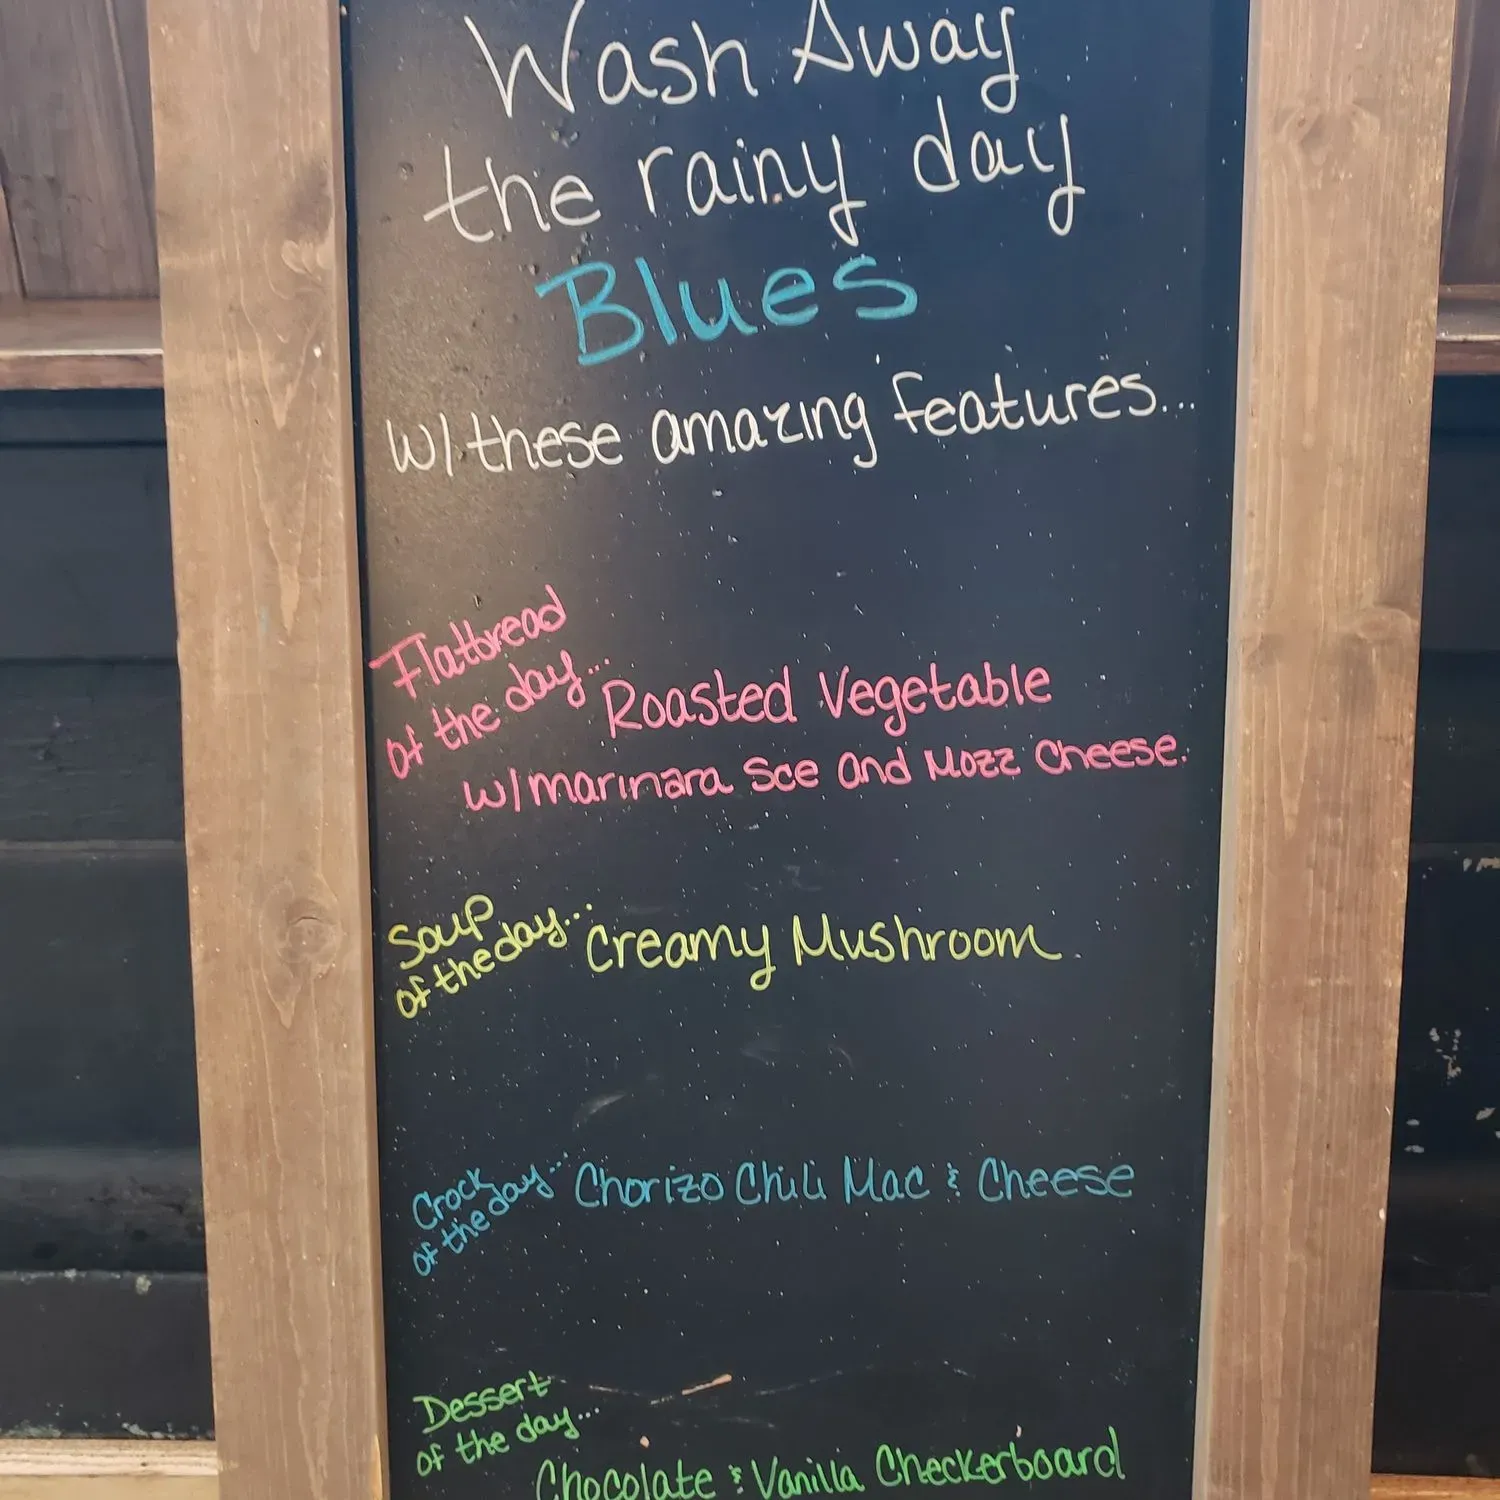 Wash Away
the rainy day
Blues
w/ these amazing features...
Flatbread
of the day...
Roasted Vegetable
w/ marinara Sce and Mozz Cheese.
Soup
of the day...
Creamy Mushroom
Crock
of the day...
Chorizo Chili Mac & Cheese
Dessert
of the day...
Chocolate & Vanilla Checkerboard